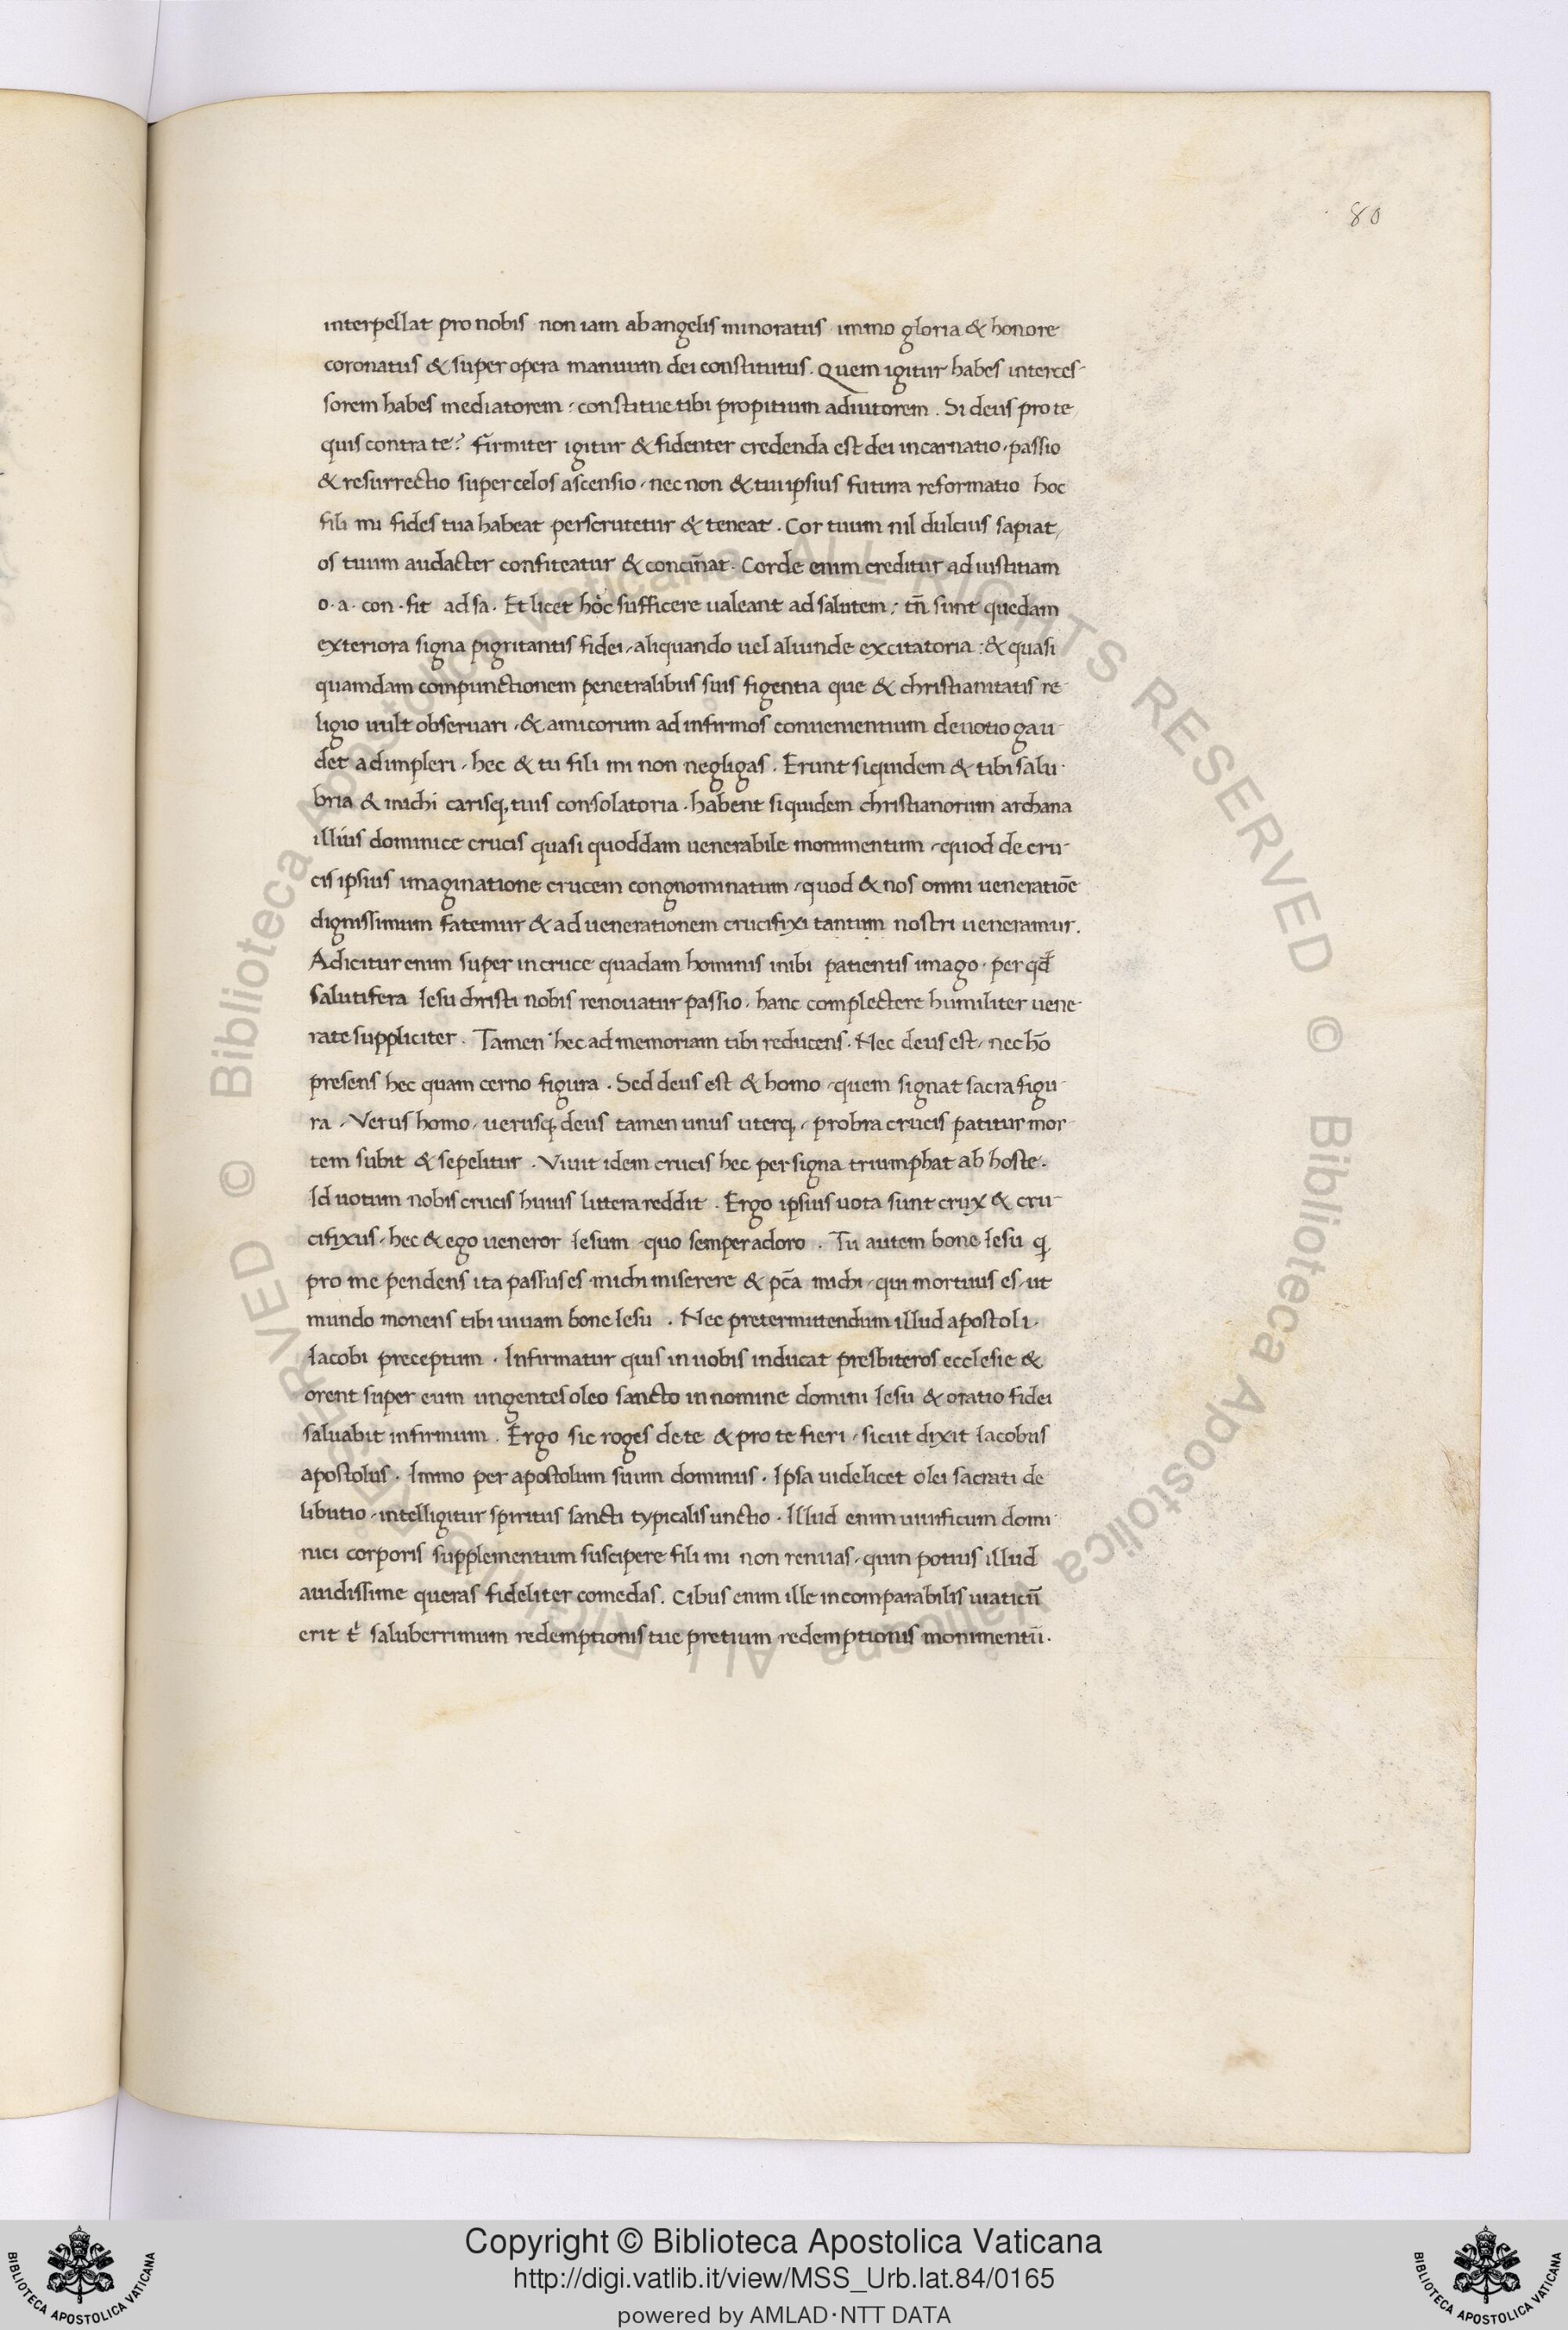 80
interpellat pro nobis non iam ab angelis minoratus immo gloria & honore
coronatus & super opera manuum dei constitutus. Quem igitur habes interces-
sorem habes mediatorem, constitue tibi propitium adiutorem. Si deus pro te,
quis contra te? firmiter igitur & fidenter credenda est dei incarnatio, passio
& resurrectio super celos ascensio, nec non & tui ipsius futura reformatio hoc
fili mi fides tua habeat perscrutetur & teneat. Cor tuum nil dulcius sapiat,
os tuum audacter confiteatur & concin̄at. Corde enim creditur ad iustitiam
o·a·con·fit ad sa. Et licet hoc sufficere ualeant ad salutem; tn̄ sunt quedam
exteriora signa pigritantis fidei, aliquando uel aliunde excitatoria: & quasi
quamdam compunctionem penetralibus suis figentia que & christianitatis re-
ligio uult obseruari, & amicorum ad infirmos conuenientium deuotio gau-
det adimpleri, hec & tu fili mi non negligas. Erunt siquidem & tibi salu-
bria & michi carisq, tuis consolatoria. habent siquidem christianorum archana
illius dominice crucis quasi quoddam uenerabile monimentum, quod de cru-
cis ipsius imaginatione crucem congnominatum, quod & nos omni ueneratiōe
dignissimum fatemur & ad uenerationem crucifixi tantum nostri ueneramur.
Adicitur enim super in cruce quadam hominis inibi patientis imago, per qd̄
salutifera Iesu christi nobis renouatur passio, hanc complectere humiliter uene-
rate suppliciter. Tamen hec ad memoriam tibi reducens. Nec deus est, nec hō
presens hec quam cerno figura. Sed deus est & homo, quem signat sacra figu-
ra, Verus homo, uerusq, deus tamen unus uterq, probra crucis patitur mor-
tem subit & sepelitur. Viuit idem crucis hec per signa triumphat ab hoste.
Id uotum nobis crucis huius littera reddit. Ergo ipsius uota sunt crux & cru-
cifixus, hec & ego ueneror Iesum quo semper adoro. Tu autem bone Iesu q
pro me pendens ita passus es michi miserere & pc̄a michi, qui mortuus es, ut
mundo moriens tibi uiuam bone Iesu. Nec pretermittendum illud apostoli
Iacobi preceptum. Infirmatur quis in uobis inducat presbiteros ecclesie &
orent super eum ungentes oleo sancto in nomine domini Iesu & oratio fidei
saluabit infirmum. Ergo sic roges de te & pro te fieri, sicut dixit Iacobus
apostolus. Immo per apostolum suum dominus. Ipsa uidelicet olei sacrati de
libutio, intelligitur spiritus sancti typicalis unctio. Illud enim uiuificum domi-
nici corporis supplementum suscipere fili mi non renuas, quin potius illud
auidissime queras fideliter comedas. Cibus enim ille incomparabilis uiaticū
erit t' saluberrimum redemptionis tue pretium redemptionis monimentū.
© Biblioteca Apostolica Vaticana ALL RIGHTS RESERVED
© Biblioteca Apostolica Vaticana ALL RIGHTS RESERVED
BIBLIOTECA APOSTOLICA VATICANA
Copyright © Biblioteca Apostolica Vaticana
http://digi.vatlib.it/view/MSS_Urb.lat.84/0165
powered by AMLAD·NTT DATA
BIBLIOTECA APOSTOLICA VATICANA